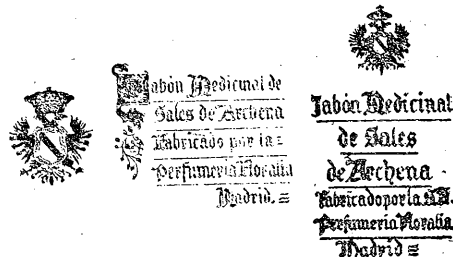 Jabón Medicinal de
Sales de Archena
Fabricado por la =
Perfumeria Floralia
Madrid. =
Jabón Medicinal
de Sales
de Archena
Fabricado por la S.A.
Perfumeria Floralia
Madrid =